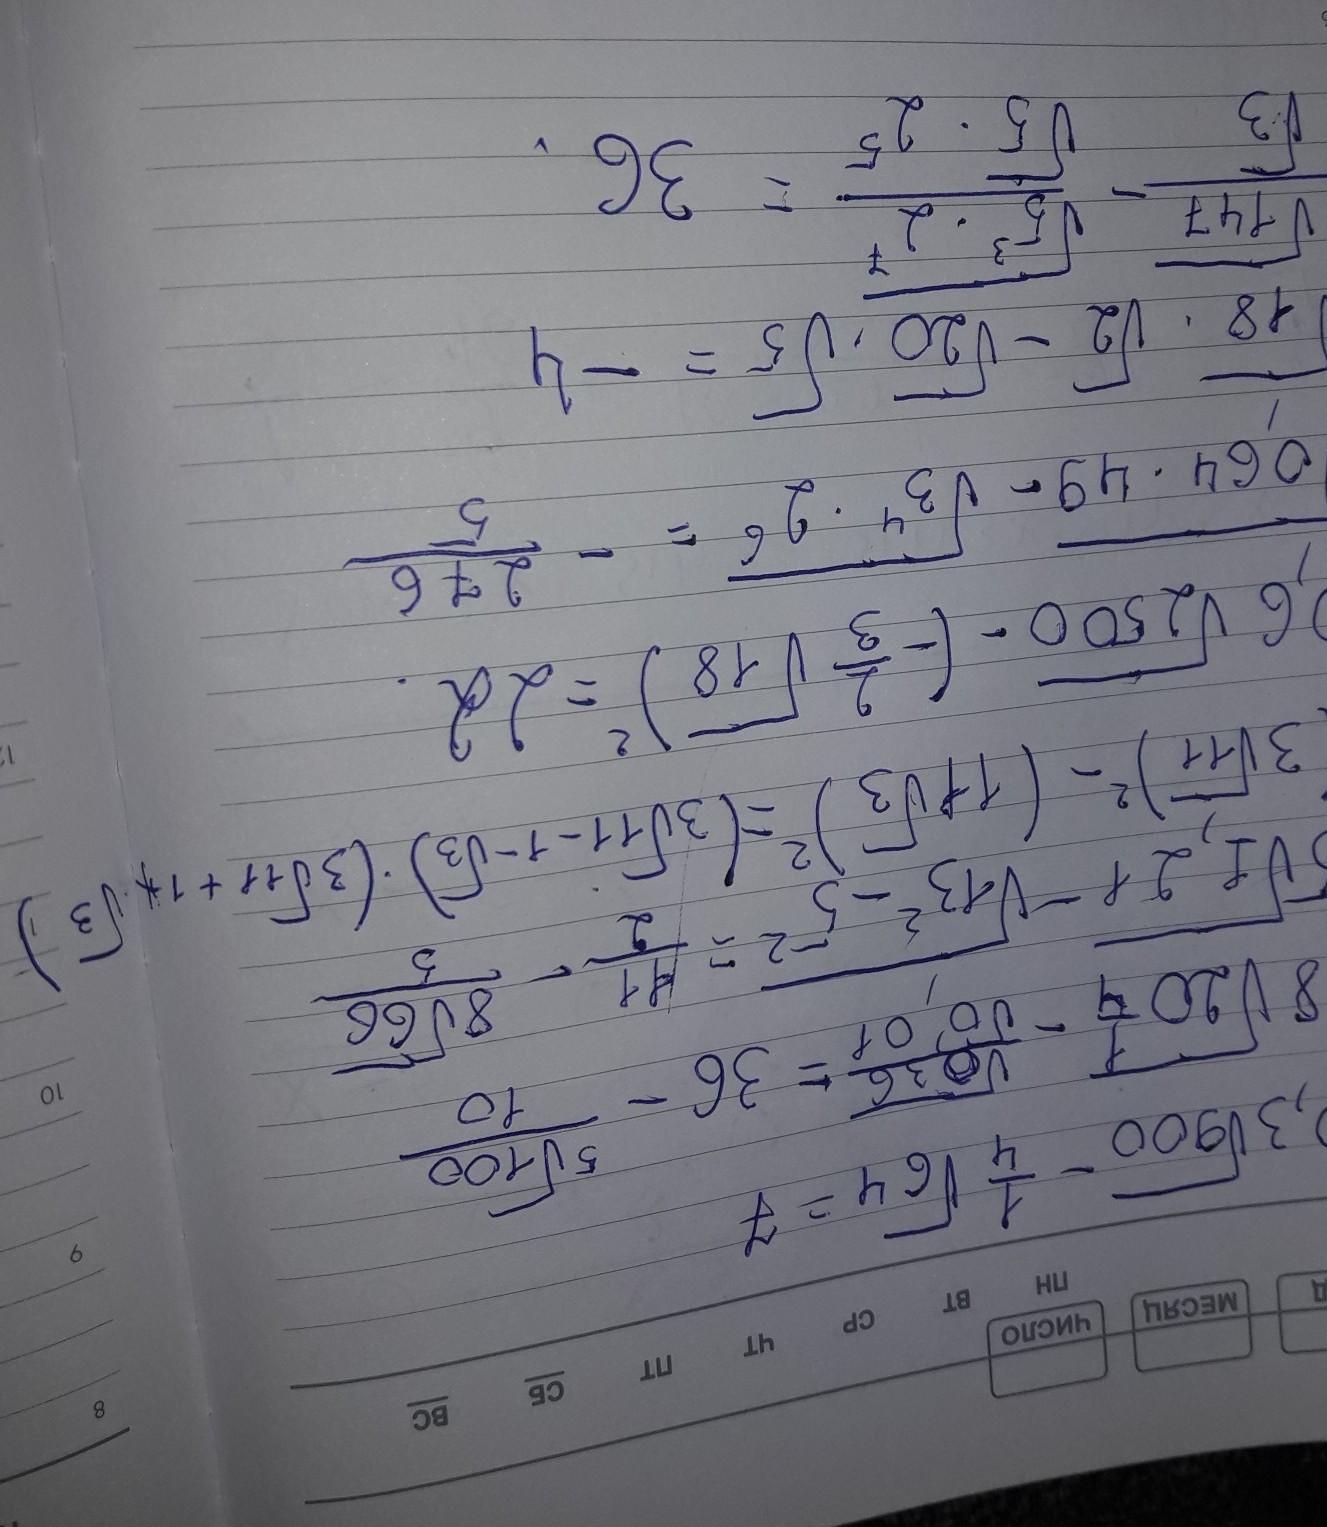 ЧИСЛО МЕСЯЦ Д
ПН ВТ СР ЧТ ПТ СБ ВС
,3√900 - 1/4 √64 = 7
8√20 1/4 - √0,36/√0,01 = 36 - 5√100/10
5√1,21 - √13² - 5⁻² = 11/2 - 8√66/5
3√11)² - (1+√3)² = (3√11 - 1 - √3) · (3√11 + 1 + √3)
0,6√2500 - (-2/3 √18)² = 22.
0,64 · 49 - √3⁴ · 2⁶ = - 276/5
√18 · √2 - √20 · √5 = - 4
√147/√3 - √5³ · 2⁷/√5 · 2⁵ = 36.
8
9
10
12